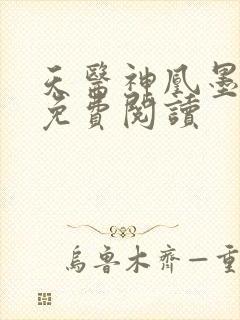 天醫神凰墨
免費閱讀
烏魯木齊—重